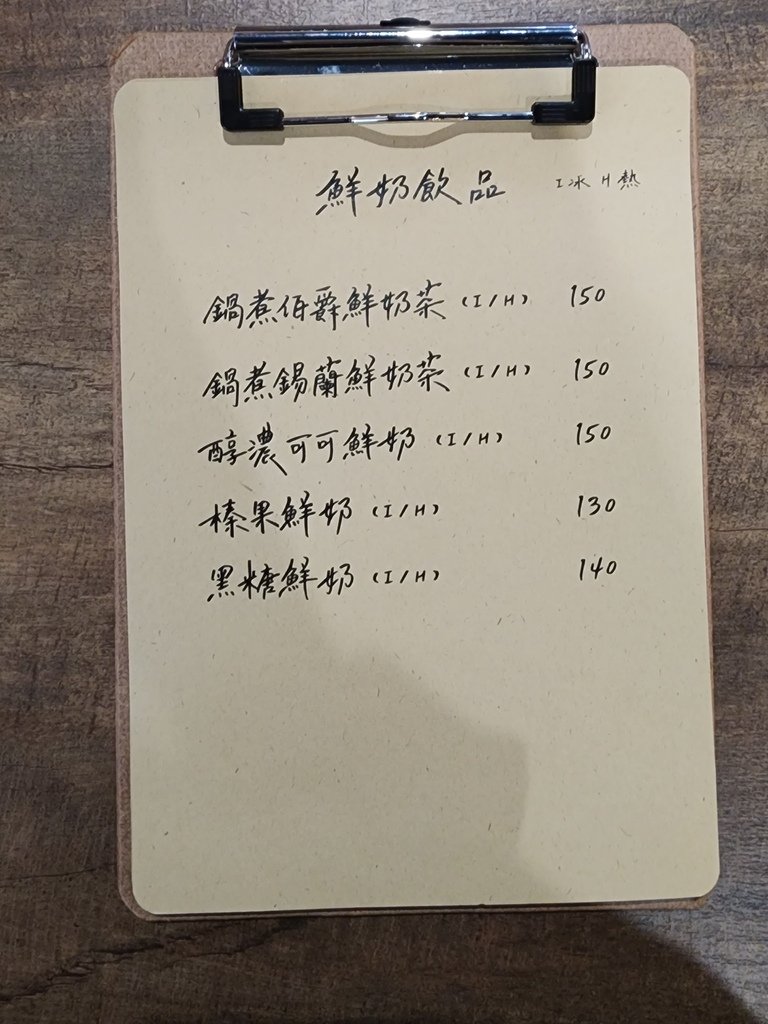 鮮奶飲品 I冰 H熱
鍋煮伯爵鮮奶茶 (I/H) 150
鍋煮錫蘭鮮奶茶 (I/H) 150
醇濃可可鮮奶 (I/H) 150
榛果鮮奶 (I/H) 130
黑糖鮮奶 (I/H) 140